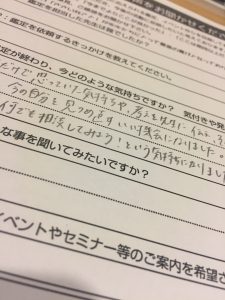 鑑定を担当した先生は誰でしたか？
鑑定を依頼するきっかけを教えてください。
定が終わり、今どのような気持ちですか？ 気付きや発
だけで思っていた気持ちや、考えを先生に伝え、そ
今の自分と見つめ直すいい機会になりました。
何でも相談してみよう！という気持ちになりました
な事を聞いてみたいですか？
ベントやセミナー等のご案内を希望さ